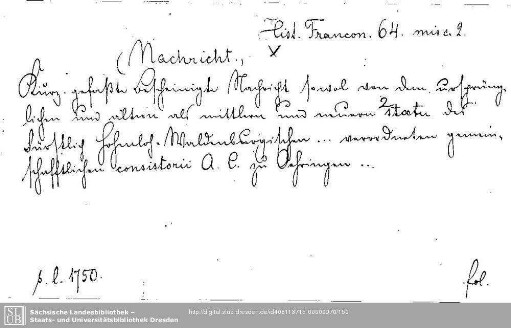 Hist. Francon. 64. misc. 2.
(Nachricht.,
Kurz gefaßte bescheinigte Nachricht sowol von dem ursprüng-
lichen und alten als mittlern und neuern Statu des
Fürstlich Hohenloh. Waldenburgischen ... verordneten gemein-
schafftlichen consistorii A. C. zu Oehringen ..
s. l. 1750.
fol.
SLUB
Sächsische Landesbibliothek –
Staats- und Universitätsbibliothek Dresden